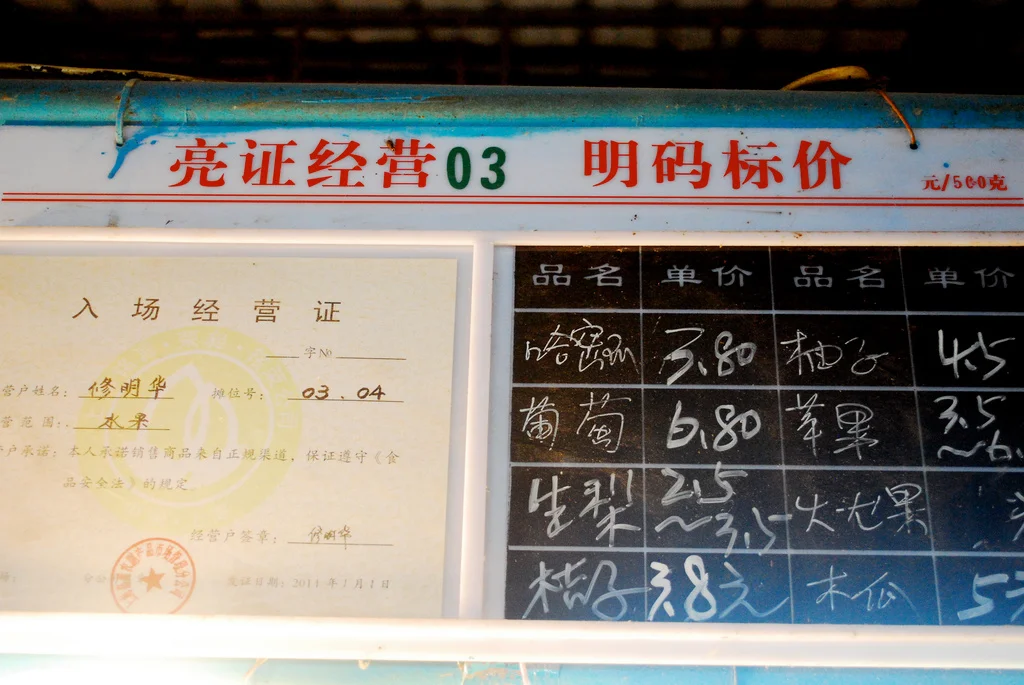 亮证经营03 明码标价 元/500克
入场经营证
字№
营户姓名: 修明华 摊位号: 03.04
营范围: 水果
户承诺: 本人承诺销售商品来自正规渠道,保证遵守《食
品安全法》的规定
经营户签章: 修明华
发证日期: 2011年1月1日
品名 单价 品名 单价
哈密瓜 3.80 柚子 4.5
葡萄 6.80 苹果 3.5~6.
生梨 2.5~3.5 火龙果
桔子 3.8元 木瓜 5元